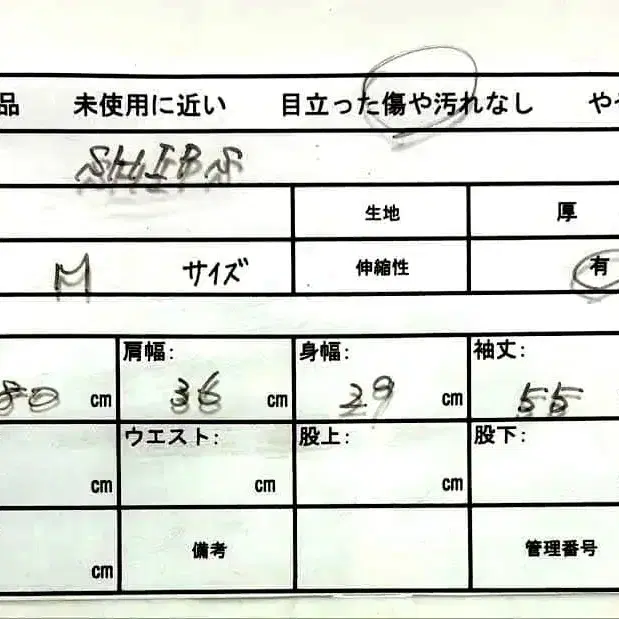 品 未使用に近い 目立った傷や汚れなし や
SHIPS
生地 厚
M サイズ 伸縮性 有
肩幅: 身幅: 袖丈:
80 cm 36 cm 29 cm 55
ウエスト: 股上: 股下:
cm cm cm
cm 備考 管理番号